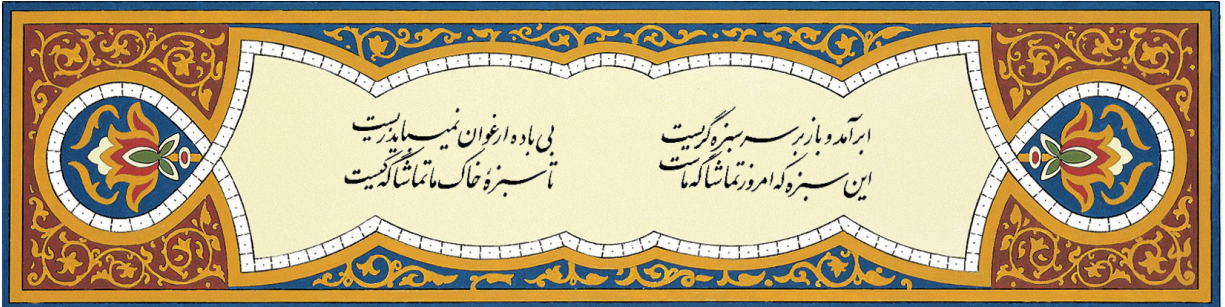 ابر آمد و باز بر سر سبزه گریست
بی باده ارغوان نمیباید زیست
این سبزه که امروز تماشاگه ماست
تا سبزهٔ خاک ما تماشاگه کیست